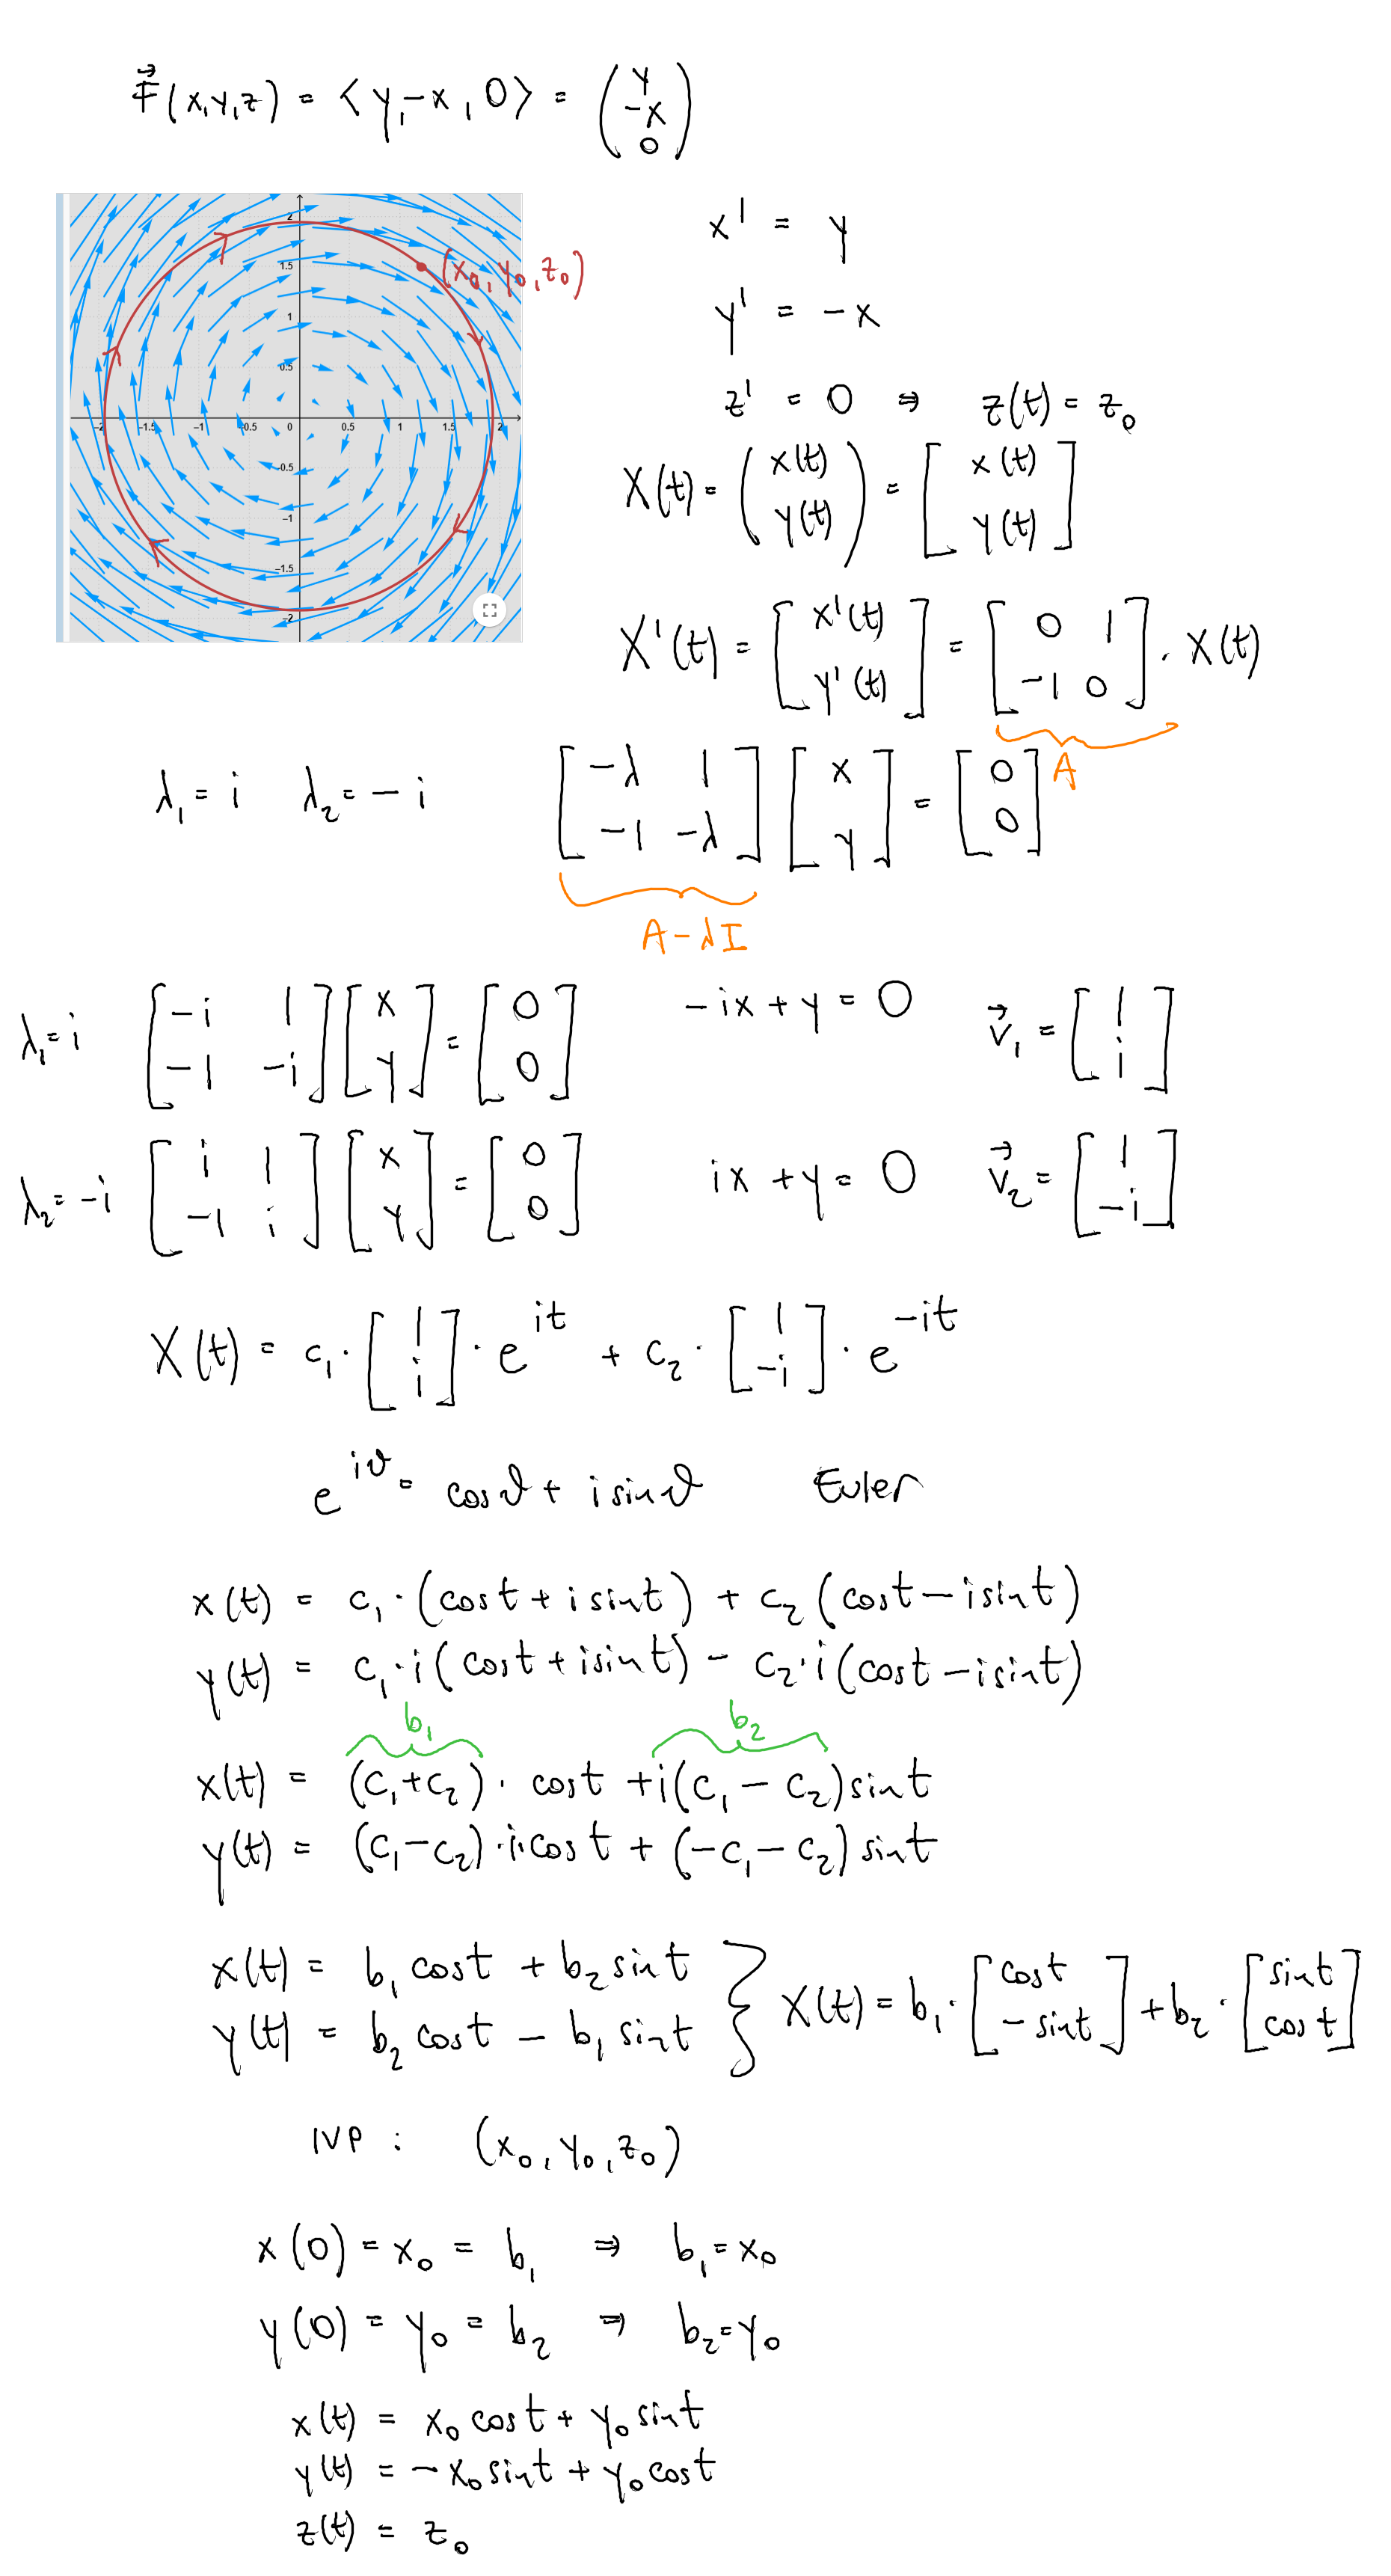 F⃗(x,y,z) = ⟨y,-x,0⟩ = (y -x 0)
2
1.5
1
0.5
-2 -1.5 -1 -0.5 0 0.5 1 1.5 2
-0.5
-1
-1.5
-2
(x₀,y₀,z₀)
x' = y
y' = -x
z' = 0 ⇒ z(t) = z₀
X(t) = (x(t) y(t)) = [x(t) y(t)]
X'(t) = [x'(t) y'(t)] = [0 1 -1 0] · X(t)
A
λ₁ = i λ₂ = -i [-λ 1 -1 -λ] [x y] = [0 0]
A - λI
λ₁ = i [-i 1 -1 -i] [x y] = [0 0] -ix + y = 0 v⃗₁ = [1 i]
λ₂ = -i [i 1 -1 i] [x y] = [0 0] ix + y = 0 v⃗₂ = [1 -i]
X(t) = c₁ · [1 i] · e^{it} + c₂ · [1 -i] · e^{-it}
e^{iϑ} = cosϑ + i sinϑ Euler
x(t) = c₁ · (cost + i sint) + c₂ (cost - i sint)
y(t) = c₁ · i (cost + i sint) - c₂ · i (cost - i sint)
b₁ b₂
x(t) = (c₁ + c₂) · cost + i(c₁ - c₂) sint
y(t) = (c₁ - c₂) · i · cost + (-c₁ - c₂) sint
x(t) = b₁ cost + b₂ sint
y(t) = b₂ cost - b₁ sint } X(t) = b₁ · [cost -sint] + b₂ · [sint cost]
IVP : (x₀, y₀, z₀)
x(0) = x₀ = b₁ ⇒ b₁ = x₀
y(0) = y₀ = b₂ ⇒ b₂ = y₀
x(t) = x₀ cost + y₀ sint
y(t) = -x₀ sint + y₀ cost
z(t) = z₀